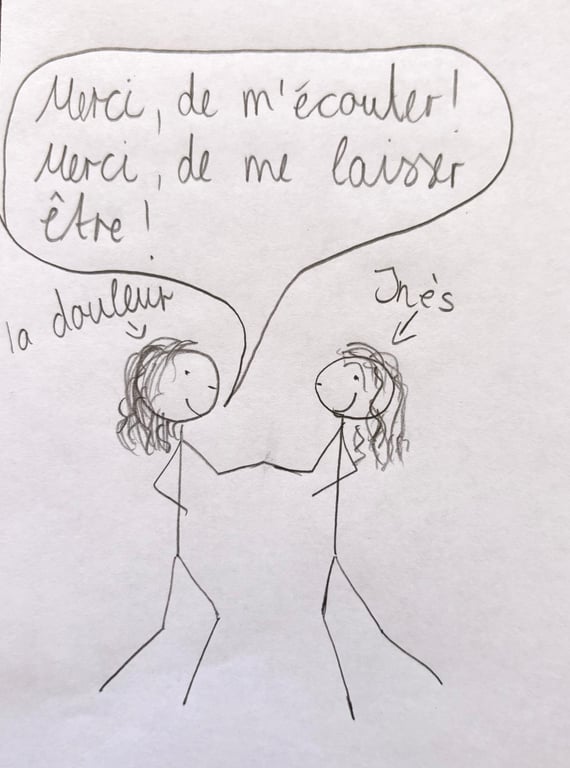 Merci, de m'écouter!
Merci, de me laisser
être!
la douleur
Inès